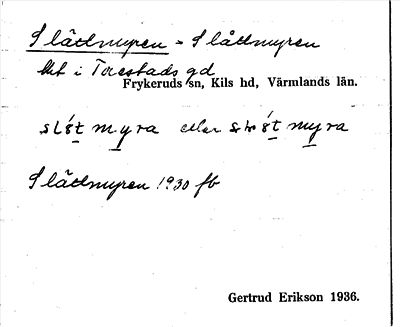 Slättmyren - Slåttmyren
i Torestads gd
Frykeruds sn, Kils hd, Värmlands län.
myra eller myra
Slättmyren 1930 fb
Gertrud Erikson 1936.